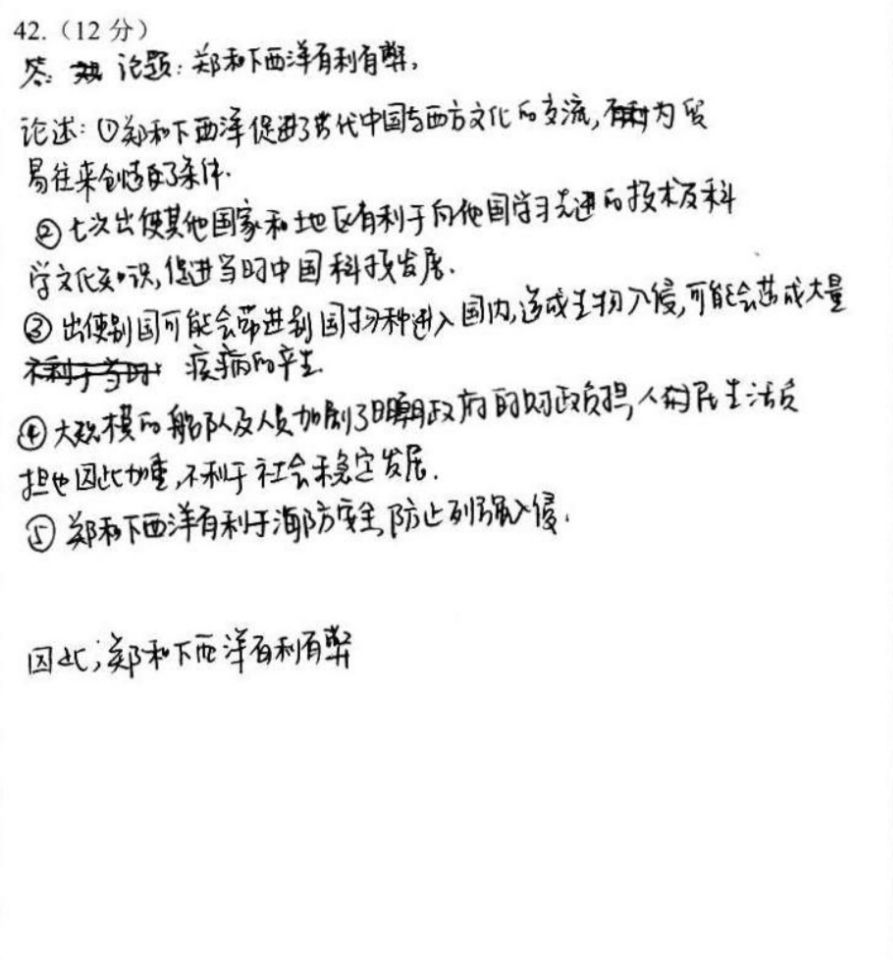 42.（12分）
答: 论题: 郑和下西洋有利有弊,
论述: ①郑和下西洋促进了古代中国与西方文化的交流,为贸
易往来创造了条件.
②七次出使其他国家和地区有利于向他国学习先进的技术及科
学文化知识,促进当时中国科技发展.
③出使别国可能会带进别国物种进入国内,造成生物入侵,可能会造成大量
疾病的产生.
④大规模的船队及人员加剧了明朝政府的财政负担,人民生活负
担也因此加重,不利于社会稳定发展.
⑤郑和下西洋有利于海防安全,防止列强入侵.
因此,郑和下西洋有利有弊